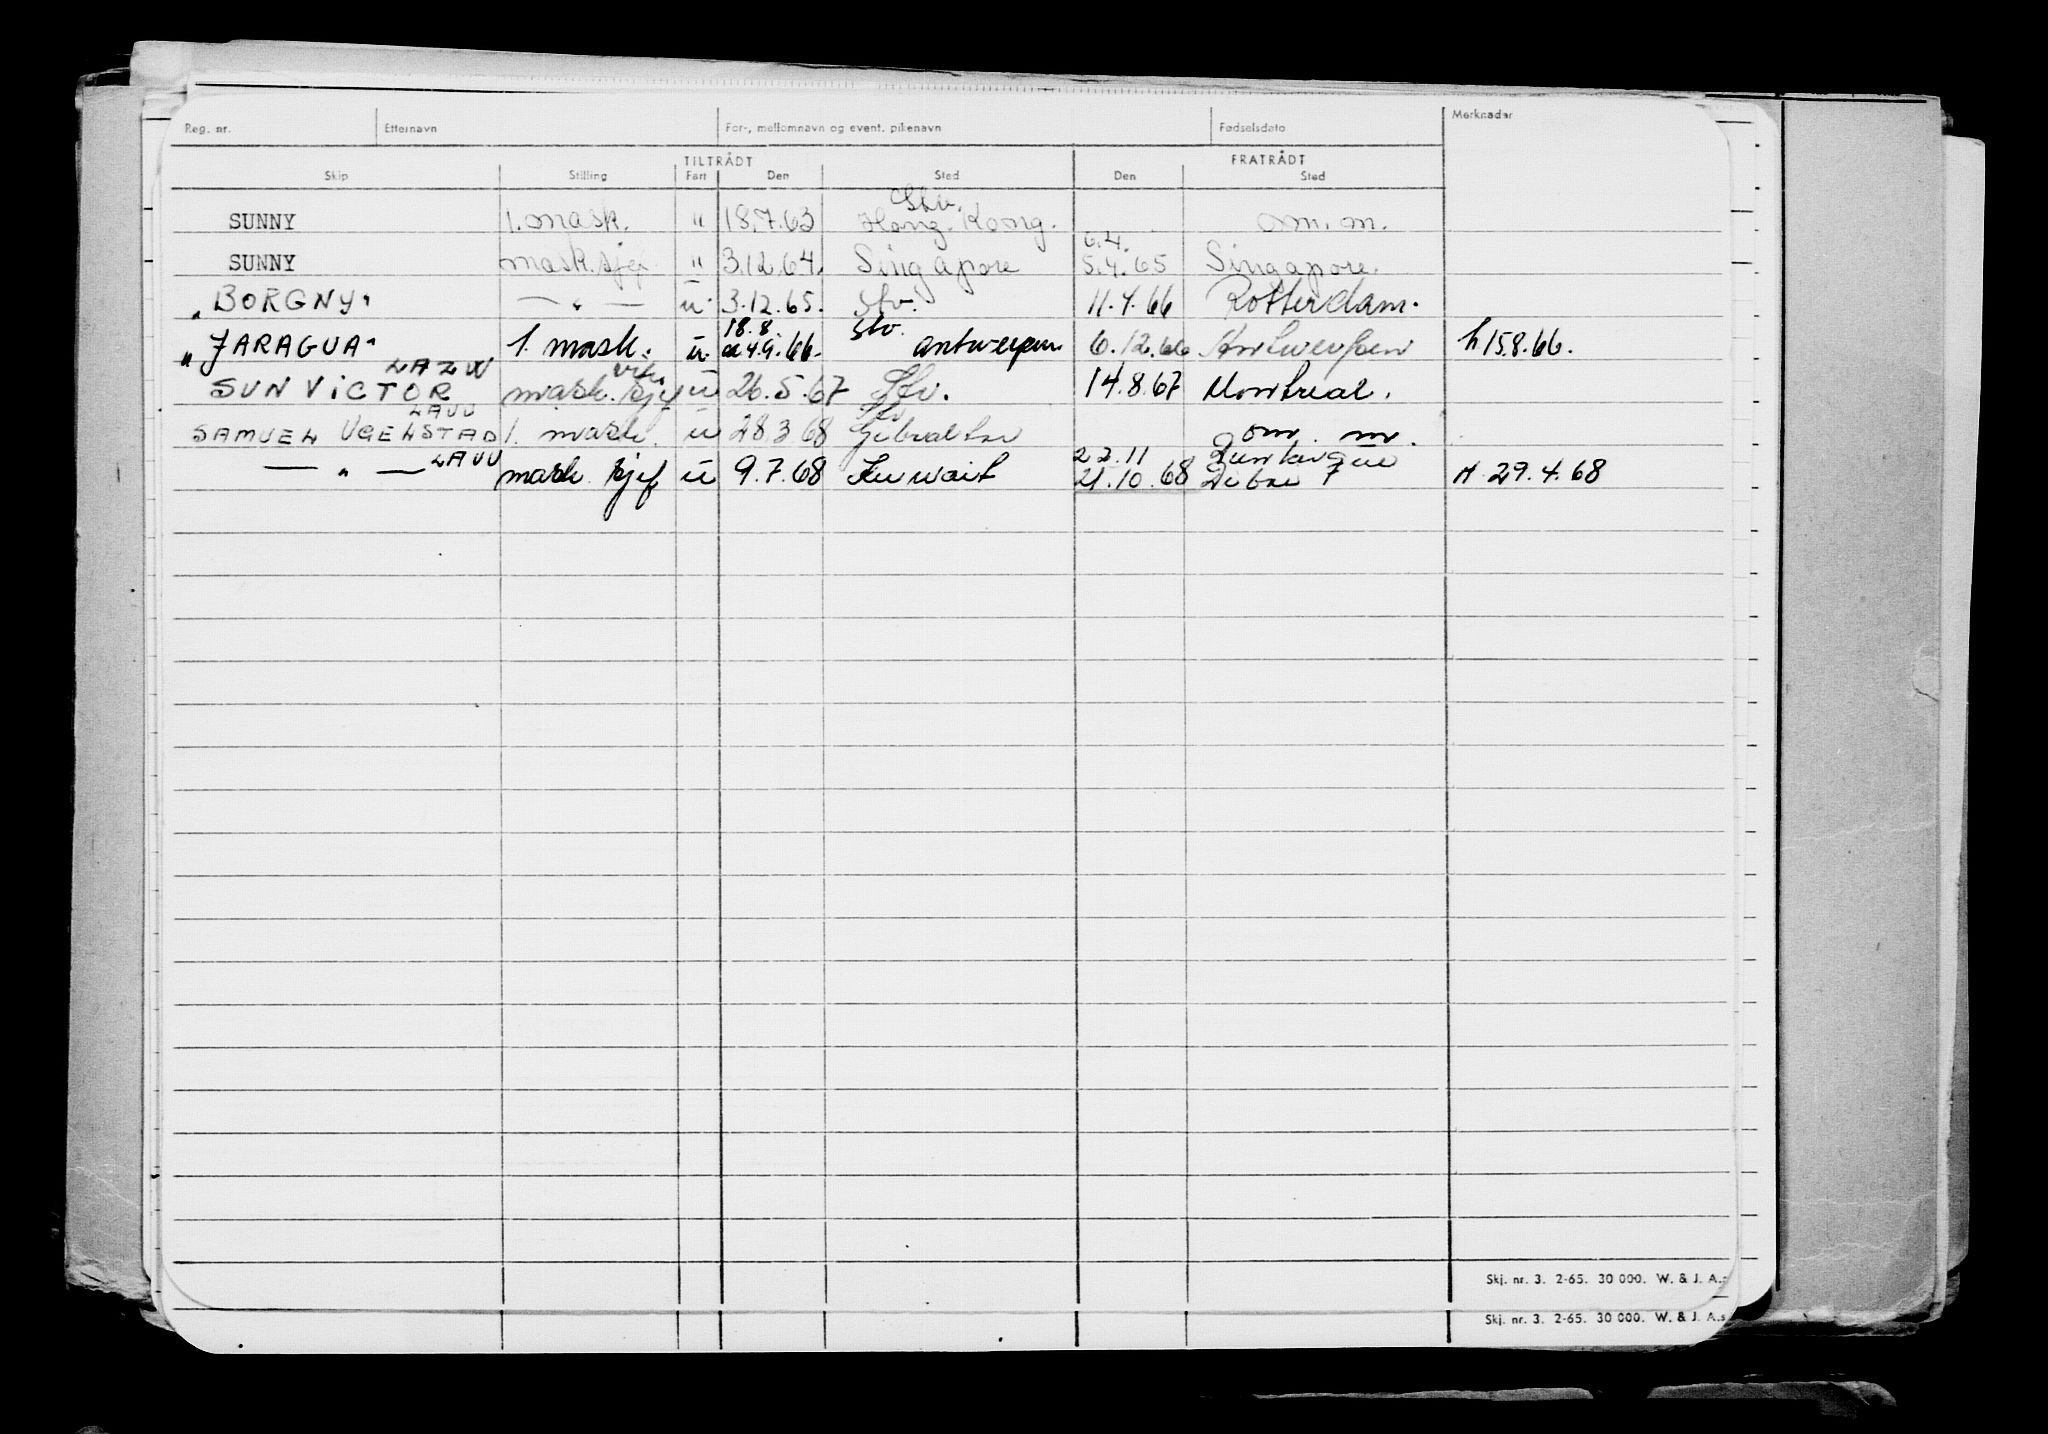 Reg. nr. Etternavn For-, mellomnavn og event. pikenavn Fødselsdato Merknader
TILTRÅDT FRATRÅDT
Skip Stilling Fart Den Sted Den Sted
Stv.
SUNNY 1. mask. " 18.7.63 Hong Kong. om. m.
6.4.
SUNNY mask.sjef " 3.12.64. Singapore 5.4.65 Singapore.
"BORGNY" — " — u. 3.12.65. Stv. 11.4.66 Rotterdam.
18.8. Stv.
"JARAGUA" 1. mask. u. 4.9.66. antwerpen 6.12.66 Antwerpen h 15.8.66.
LAZW
SUN VICTOR mask. sjef u 26.5.67 Stv. 14.8.67 Montreal.
LAUU Stv
SAMUEL UGELSTAD 1. mask. u 28.3.68 Gibraltar om. m.
LAUU 22.11 Dunkirque
— " — mask sjef u 9.7.68 Kuwait 21.10.68 29.4.68
Skj. nr. 3. 2-65. 30 000. W. & J. A.s
Skj. nr. 3. 2-65. 30 000. W. & J. A.s